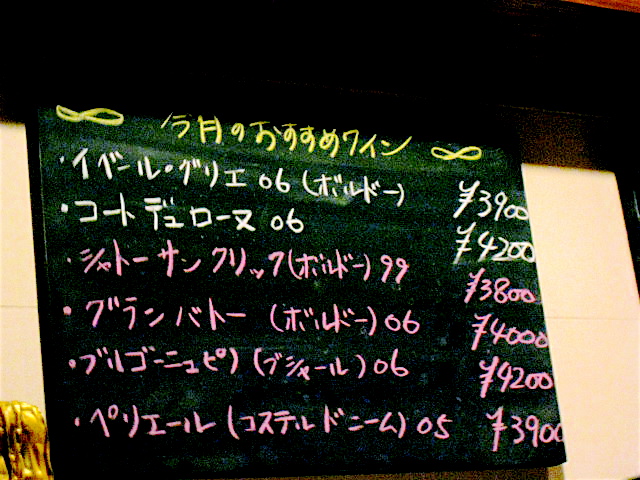 今月のおすすめワイン
・イベール・グリエ 06 (ボルドー) ¥3900
・コートデュローヌ 06 ¥4200
・シャトーサンクリック(ボルドー) 99 ¥3800
・グランバトー (ボルドー) 06 ¥4000
・ブルゴーニュピノ (ブシャール) 06 ¥4200
・ペリエール (コステルドニーム) 05 ¥3900